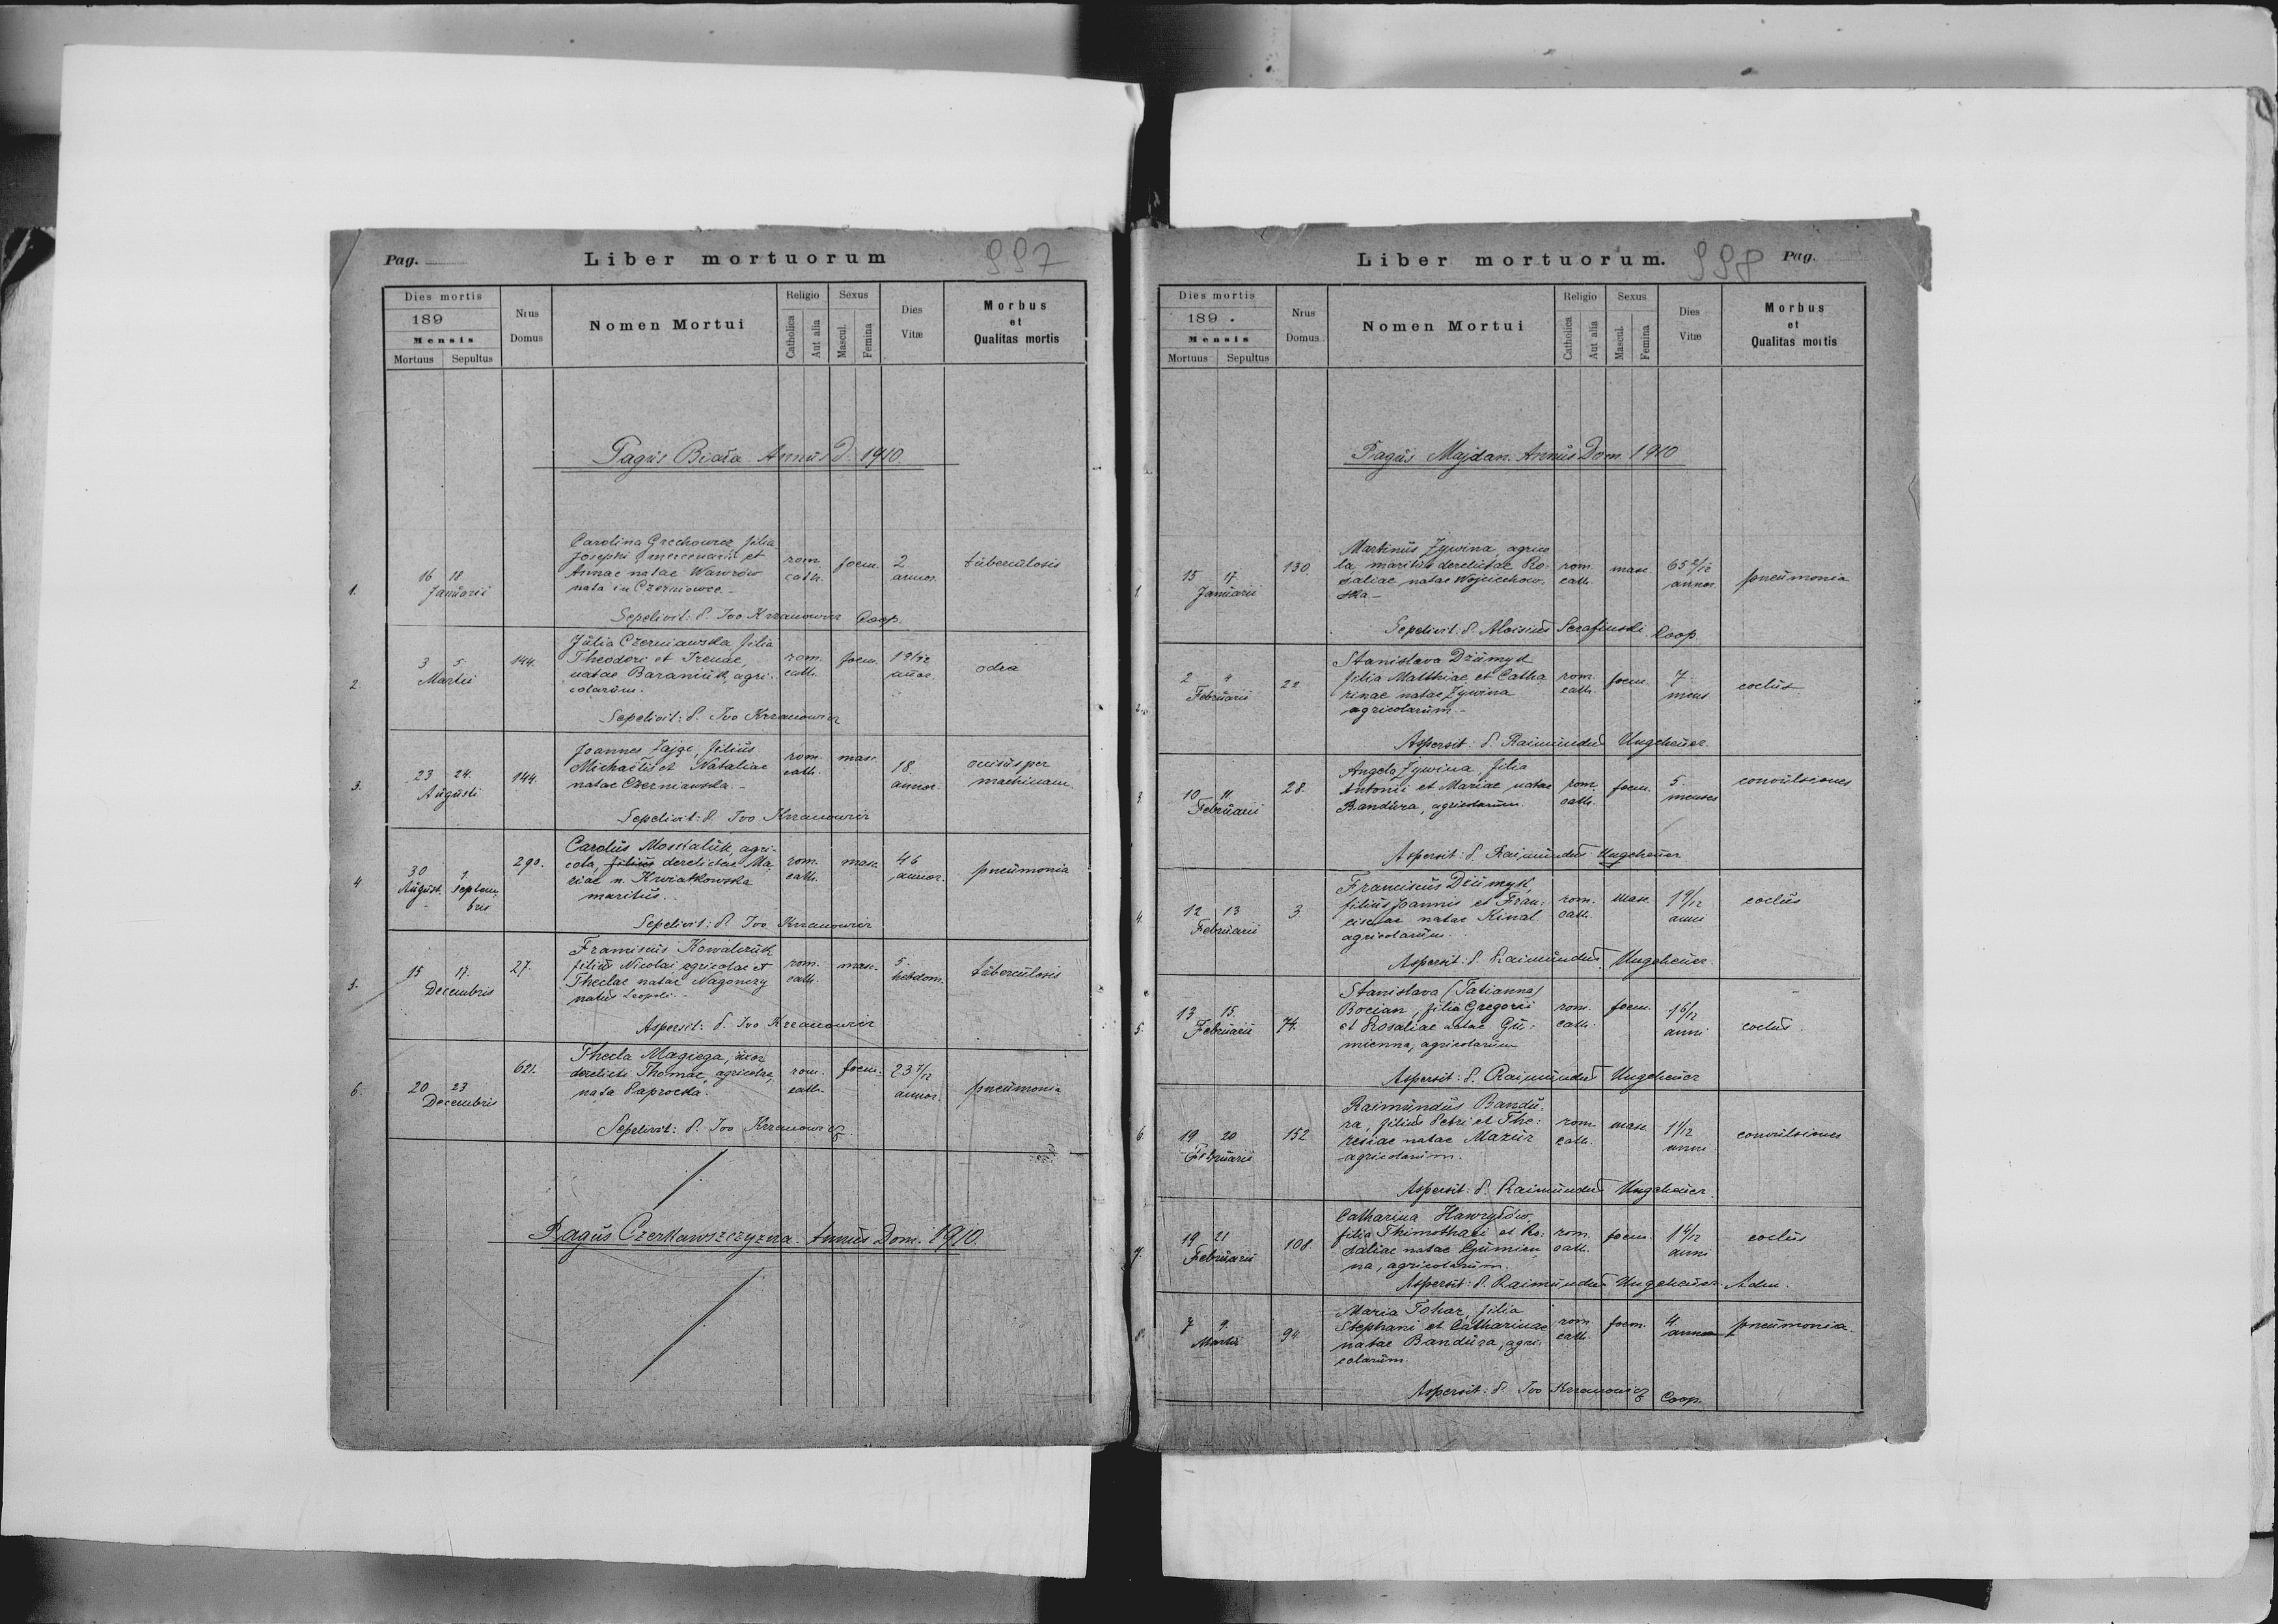 Pag.
Liber mortuorum
997
Dies mortis
189
Mensis
Mortuus Sepultus
Nrus
Domus
Nomen Mortui
Religio
Catholica
Aut alia
Sexus
Mascul.
Femina
Dies
Vitæ
Morbus
et
Qualitas mortis
Pagus Biała. Annus D. 1910
1.
16 18
Januarii
Carolina Grechowicz filia
Josephi mercenarii et
Annae natae Wawrów
nata in Czerniowce.-
rom.
cath.
foem.
2
annor.
tuberculosis
Sepelivit: P. Ivo Krzanowicz Coop.
2
3 5
Martii
144.
Julia Czerniawska filia
Theodori et Irenae,
natae Baraniuk, agri-
colarum.
rom.
cath.
foem.
1 9/12
annor.
odra
Sepelivit: P. Ivo Krzanowicz
3.
23 24.
Augusti
144.
Joannes Zajge, filius
Michaëlis et Nataliae
natae Czerniawska.-
rom.
cath.
masc.
18.
annor.
occisus per
machinam.
Sepelivit: P. Ivo Krzanowicz
4.
30 1.
August. Septem-
bris
290.
Carolus Moskaluk, agri-
cola, filius derelictae Ma-
riae n. Kwiatkowska
maritus.
rom.
cath.
masc.
46
annor.
pneumonia
Sepelivit: P. Ivo Krzanowicz
5.
15 17.
Decembris
27.
Franciscus Kowalczuk
filius Nicolai agricolae et
Theclae natae Nagonczy
natus Leopoli.-
rom.
cath.
masc.
5.
hebdom.
tuberculosis
Aspersit: P. Ivo Krzanowicz
6.
20 23
Decembris
621.
Thecla Magiega, uxor
derelicti Thomae, agricolae,
nata Paprocka.
rom.
cath.
foem.
23 7/12
annor.
pneumonia
Sepelivit: P. Ivo Krzanowicz.
Pagus Czerkawszczyzna. Annus Dom. 1910.
Liber mortuorum.
998
Pag.
Dies mortis
189 .
Mensis
Mortuus Sepultus
Nrus
Domus
Nomen Mortui
Religio
Catholica
Aut alia
Sexus
Mascul.
Femina
Dies
Vitæ
Morbus
et
Qualitas mortis
Pagus Majdan. Annus Dom. 1910
1.
15 17
Januarii
130
Martinus Zywina, agrico
la, maritus derelictae Ro-
saliae natae Wojciechow-
ska.-
rom.
cath.
masc.
65 2/12
annor.
pneumonia
Sepelivit: P. Aloisius Serafinski Coop.
2.
2 4
Februarii
22
Stanislava Dziimyk
filia Matthiae et Catha
rinae natae Zywina
agricolarum.-
rom.
cath.
foem.
7
mens
coclus
Aspersit: P. Raimundus Ungeheuer.
3.
10 11.
Februarii
28.
Angela Zywina, filia
Antonii et Mariae natae
Bandura, agricolarum.
rom.
cath.
foem.
5
menses
convulsiones
Aspersit: P. Raimundus Ungeheuer
4.
12 13
Februarii
3
Franciscus Dziimyk,
filius Joannis et Fran-
ciscae natae Kinal
agricolarum.
rom.
cath.
masc.
1 9/12
anni
coclus
Aspersit: P. Raimundus Ungeheuer.
5.
13 15.
Februarii
74.
Stanislava (Tatianna)
Bocian, filia Gregorii
et Rosaliae natae Gu-
mienna, agricolarum
rom.
cath.
foem.
1 6/12
anni
coclus.
Aspersit: P. Raimundus Ungeheuer
6.
19 20
Februarii
152
Raimundus Bandu-
ra, filius Petri et The-
resiae natae Mazur
agricolarum.
rom.
cath.
masc.
1 1/12
anni
convulsiones
Aspersit: P. Raimundus Ungeheuer.
7.
19 21
Februarii
108
Catharina Hawryłów
filia Thimothaei et Ro-
saliae natae Gumien
na, agricolarum.
rom.
cath.
foem.
1 4/12
anni
coclus
Aspersit: P. Raimundus Ungeheuer. Adm.
8.
7 9.
Martii
94
Maria Tokar, filia
Stephani et Catharinae
natae Bandura, agri-
colarum
rom.
cath.
foem.
4
annor
pneumonia.
Aspersit: P. Ivo Krzanowicz Coop.